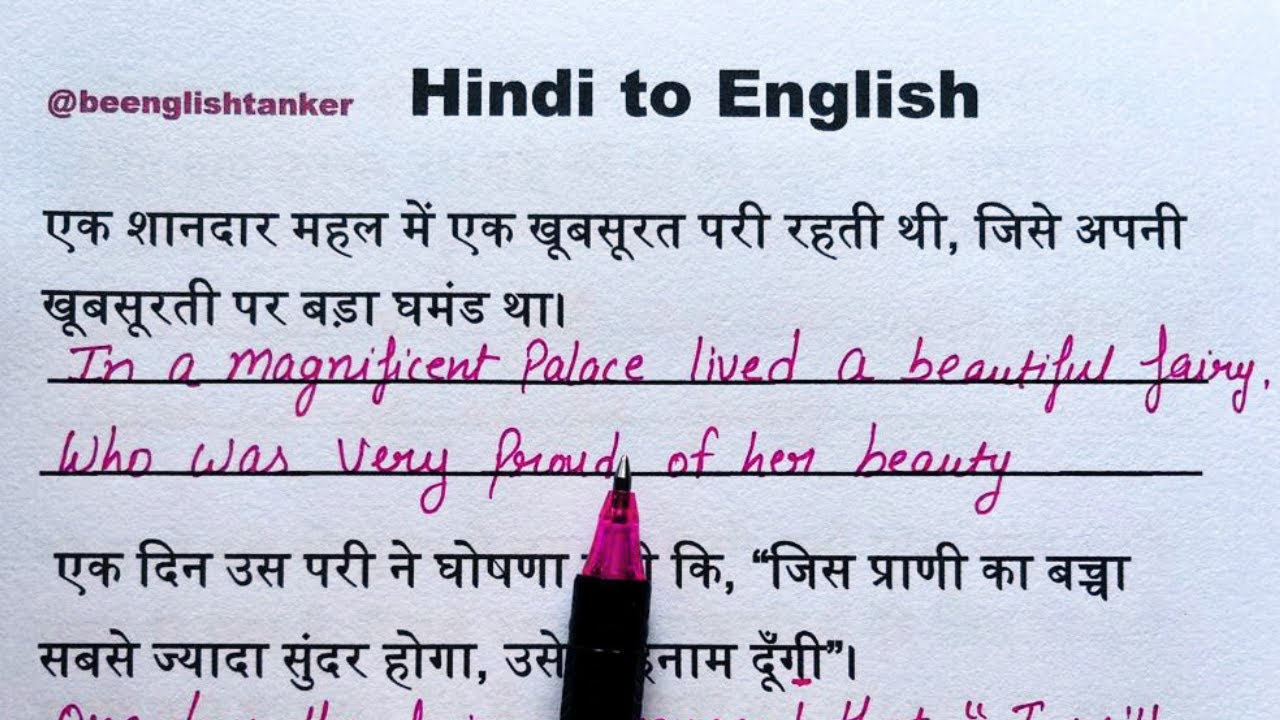 @beenglishtanker Hindi to English
एक शानदार महल में एक खूबसूरत परी रहती थी, जिसे अपनी
खूबसूरती पर बड़ा घमंड था।
In a magnificent Palace lived a beautiful fairy.
Who was very Proud of her beauty
एक दिन उस परी ने घोषणा कि, “जिस प्राणी का बच्चा
सबसे ज्यादा सुंदर होगा, उसे दूँगी”।